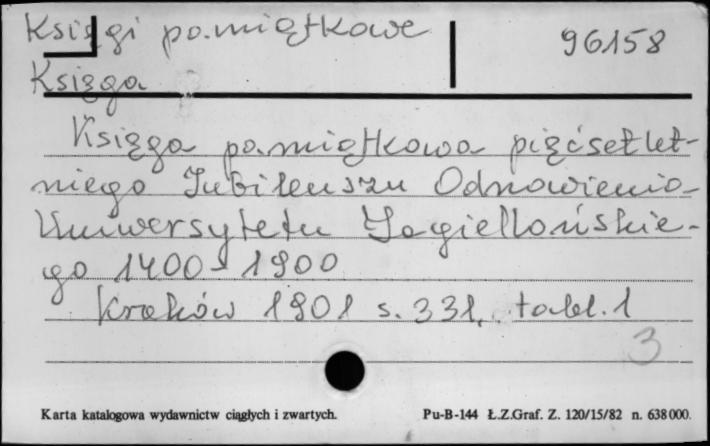 Księgi pamiątkowe 96158
Księga
Księga pamiątkowa pięćsetlet-
niego Jubileuszu Odnowienia
Uniwersytetu Jagiellońskie-
go 1400-1900
Kraków 1901 s. 331, tabl. 1
3
Karta katalogowa wydawnictw ciągłych i zwartych. Pu-B-144 Ł.Z.Graf. Z. 120/15/82 n. 638 000.